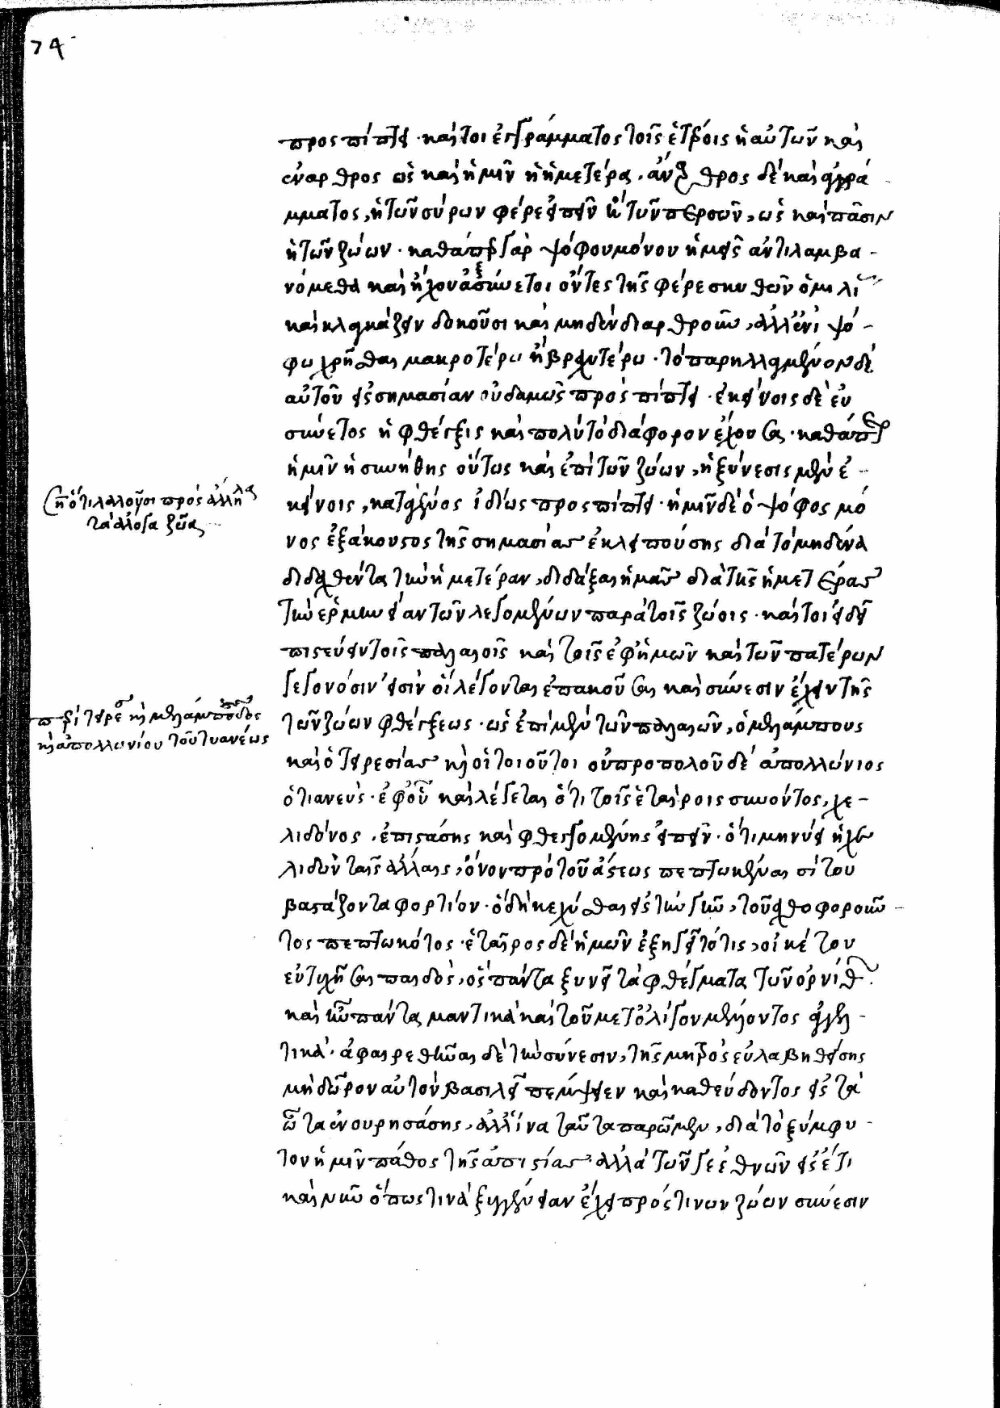 74
προσπίπτει · καίτοι ἐγγράμματος τοῖς ἑτέροις ἡ αὐτῶν καὶ
ἔναρθρος ὡς καὶ ἡμῖν ἡ ἡμετέρα · ἄναρθρος δὲ καὶ ἀγρά
μματος, ἡ τῶν σύρων φέρε εἰπεῖν ἢ τῶν περσῶν, ὡς καὶ πᾶσιν
ἡ τῶν ζώων · καθάπερ γὰρ ψόφου μόνου ἡμεῖς ἀντιλαμβα-
νόμεθα καὶ ἤχου ἀξύνετοι ὄντες τῆς φέρε σκυθῶν ὁμιλί
καὶ κλαγγάζειν δοκοῦσι καὶ μηδὲν διαρθροῦν, ἀλλ' ἑνὶ ψό-
φω χρῆσθαι μακροτέρω ἢ βραχυτέρω · τὸ παρηλλαγμένον δὲ
αὐτοῦ εἰς σημασίαν οὐδαμῶς προσπίπτει · ἐκείνοις δὲ εὐ
σύνετος ἡ φθέγξις καὶ πολὺ τὸ διάφορον ἔχουσα · καθάπερ
ἡμῖν ἡ συνήθης οὕτως καὶ ἐπὶ τῶν ζώων, ἡ ξύνεσις μὲν ἐ-
κείνοις, κατὰ γένος ἰδίως προσπίπτει · ἡμῖν δὲ ὁ ψόφος μό
νος ἐξάκουστος τῆς σημασίας ἐκλειπούσης διὰ τὸ μηδένα
διδαχθέντα τὴν ἡμετέραν, διδάξαι ἡμᾶς διὰ τῆς ἡμετέρας
τὴν ἑρμηνείαν τῶν λεγομένων παρὰ τοῖς ζώοις · καίτοι εἰ δεῖ
πιστεύειν τοῖς παλαιοῖς καὶ τοῖς ἐφ' ἡμῶν καὶ τῶν πατέρων
γεγονόσιν εἰσὶν οἳ λέγονται ἐπακοῦσαι καὶ σύνεσιν ἔχειν τῆς
τῶν ζώων φθέγξεως · ὡς ἐπὶ μὲν τῶν παλαιῶν, ὁ μελάμπους
καὶ ὁ τειρεσίας καὶ οἱ τοιοῦτοι οὐ πρὸ πολοῦ δὲ ἀπολλώνιος
ὁ τιανεύς · ἐφ' οὗ καὶ λέγεται ὅτι τοῖς ἑταίροις συνόντος, χε-
λιδόνος · ἐπιστάσης καὶ φθεγγομένης εἰπεῖν · ὅτι μηνύει ἡ χε
λιδὼν ταῖς ἄλλαις, ὄνον πρὸ τοῦ ἄστεως πεπτωκέναι σίτου
βαστάζοντα φορτίον · ὃ δὴ κεχύσθαι εἰς τὴν γῆν, τοῦ ἀχθοφοροῦν-
τος πεπτωκότος · ἑταῖρος δὲ ἡμῶν ἐξηγεῖτό τις, οἰκέτου
εὐτυχῆσαι παιδός, ὃς πάντα ξυνεῖ τὰ φθέγματα τῶν ὀρνίθ
καὶ ἦν πάντα μαντικὰ καὶ τοῦ μετ' ὀλίγον μέλλοντος ἀγγελ-
τικά · ἀφαιρεθῆναι δὲ τὴν σύνεσιν, τῆς μητρὸς εὐλαβηθείσης
μὴ δῶρον αὐτὸν βασιλεῖ πέμψειεν καὶ καθεύδοντος εἰς τὰ
ὦτα ἐνουρησάσης · ἀλλ' ἵνα ταῦτα παρῶμεν, διὰ τὸ ξύμφυ-
τον ἡμῖν πάθος τῆς ἀπιστίας · ἀλλὰ τῶν γε ἐθνῶν εἰς ἔτι
καὶ νῦν ὅπως τινὰ ξυγγένειαν ἔχει πρός τινων ζώων σύνεσιν
ὅτι λαλοῦσι πρὸς ἄλληλα
τὰ ἄλογα ζῶα
περὶ τειρεσίου καὶ μελάμποδος
καὶ ἀπολλωνίου τοῦ τυανέως